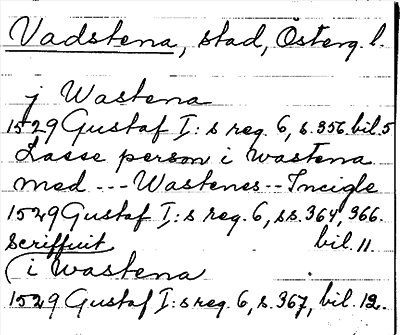 Vadstena, stad, Österg. l.
j Wastena
1529 Gustaf I:s reg. 6, s. 356. bil. 5
Lasse person i wastena
med --- Wastenes -- Incigle
1529 Gustaf I:s reg. 6, ss. 364, 366.
Scriffuit bil. 11.
(i wastena
1529 Gustaf I:s reg. 6, s. 367, bil. 12.